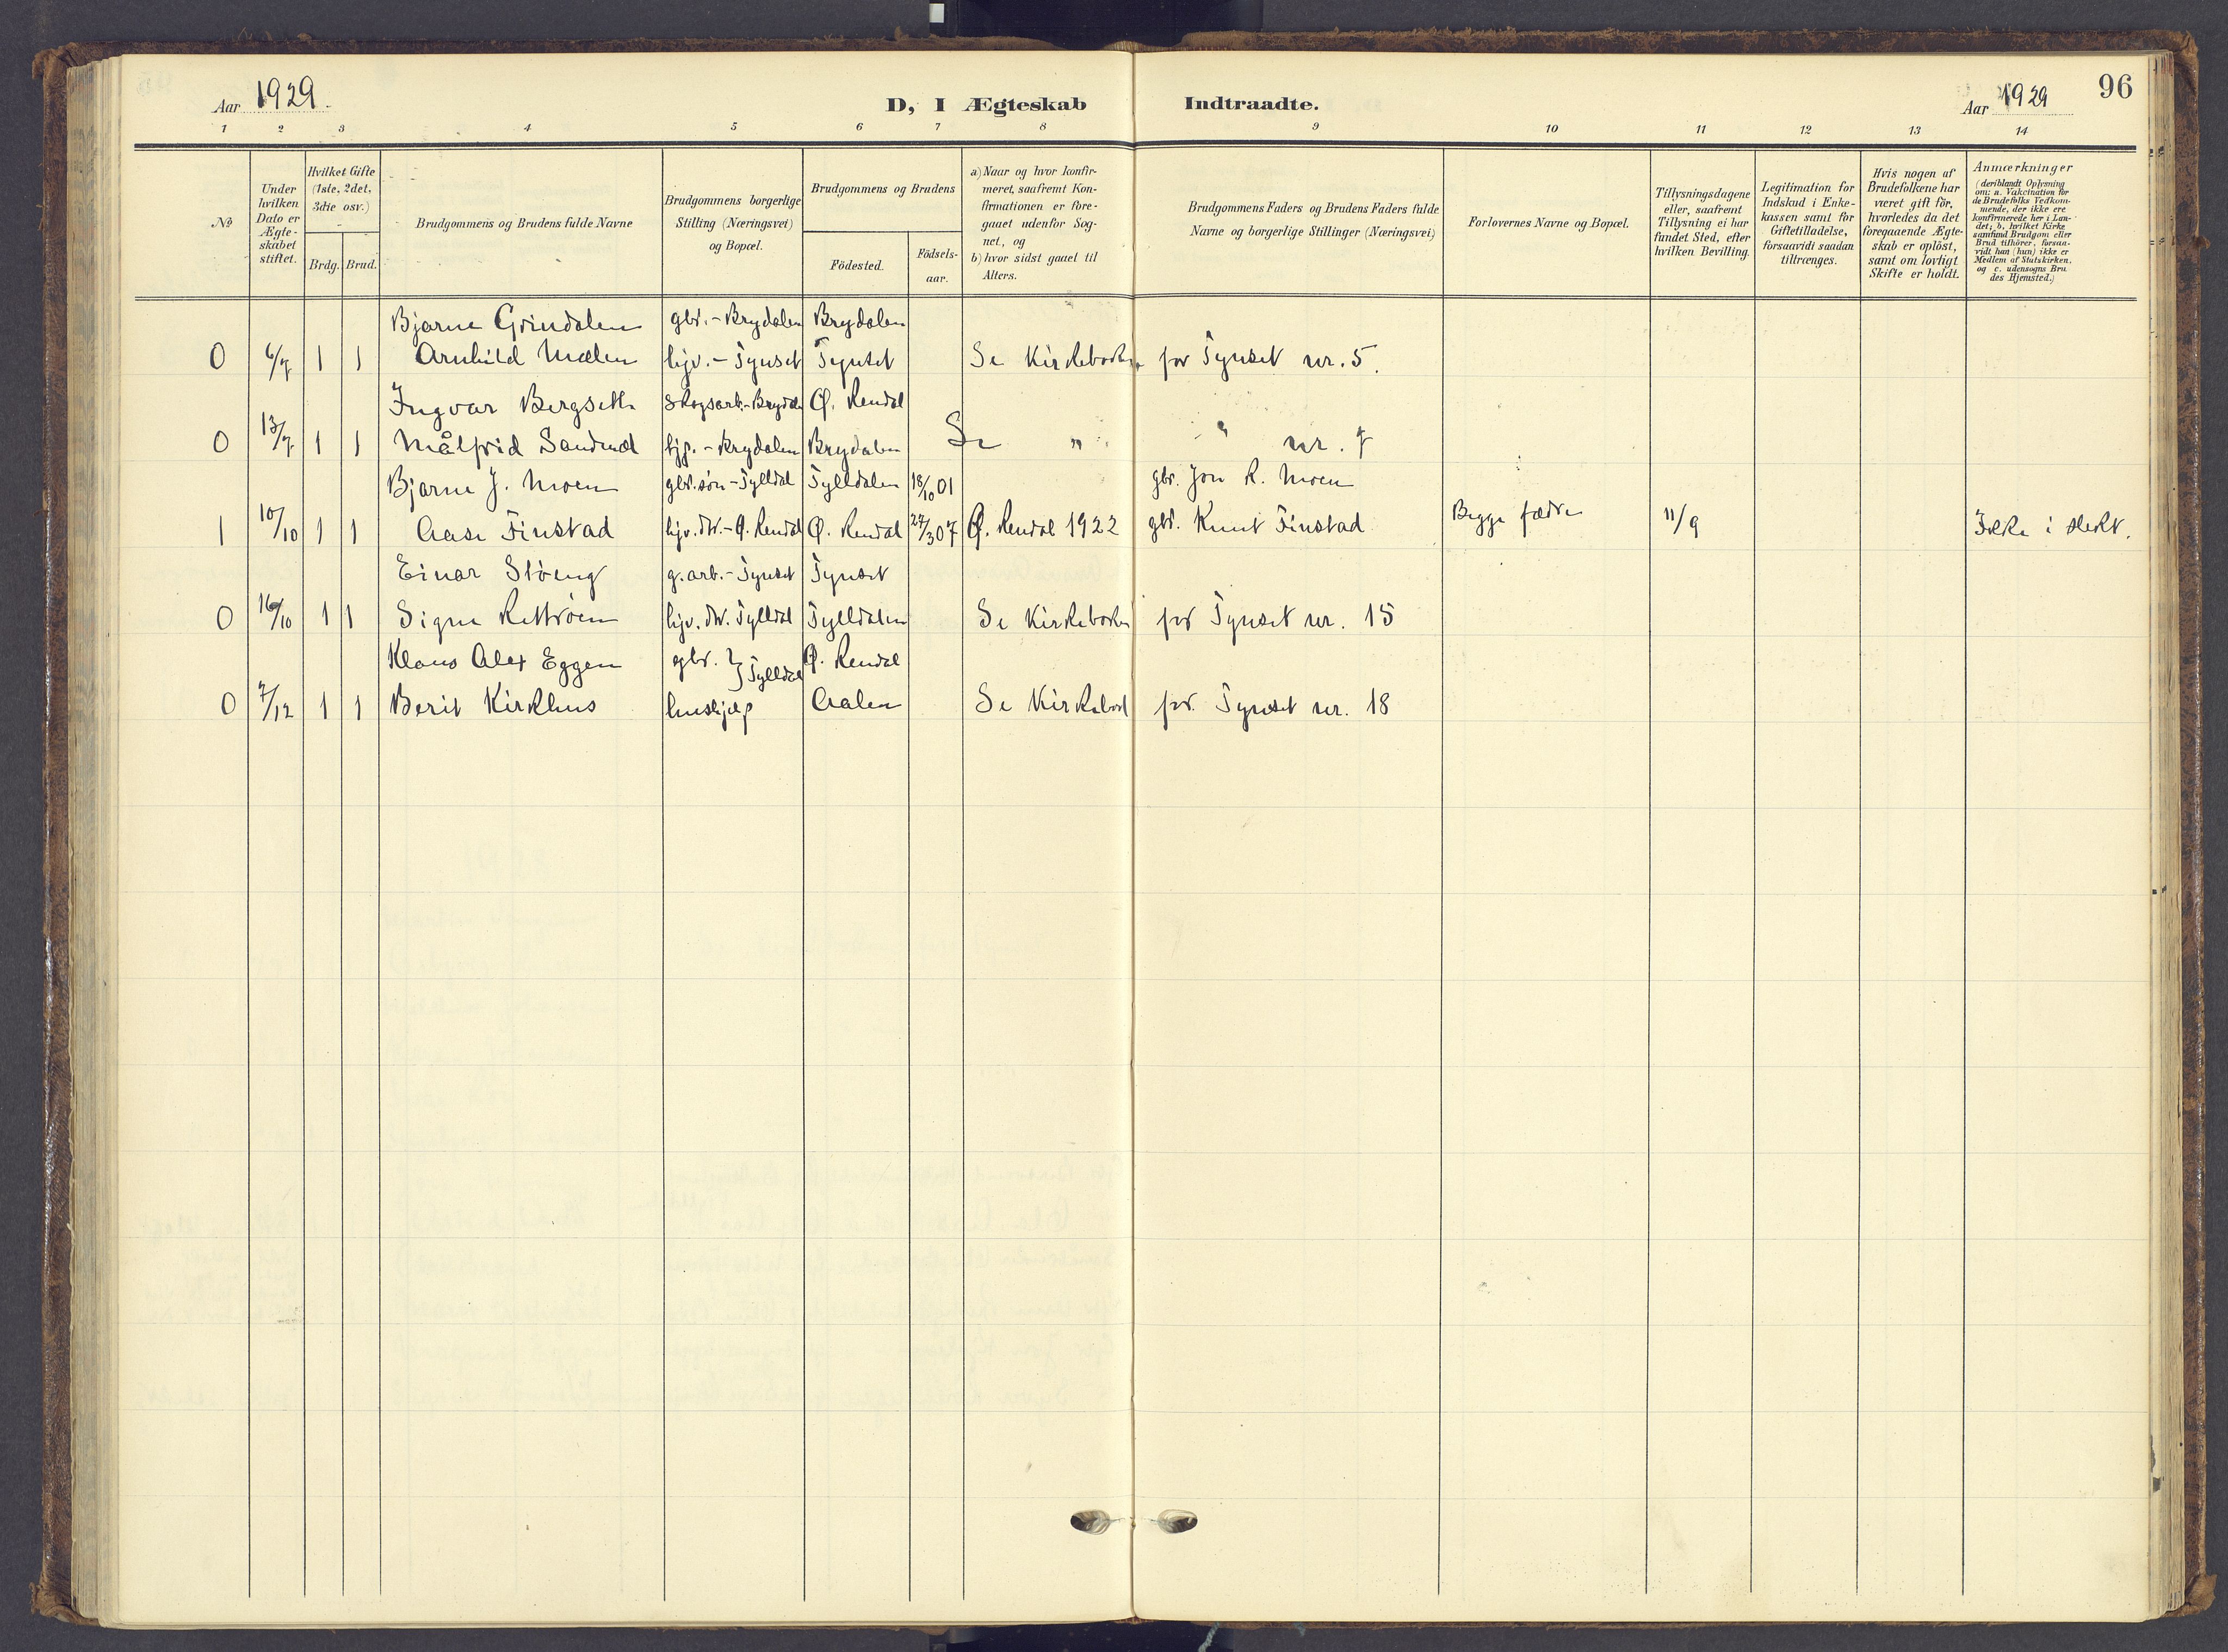 96
Aar 1929.
D, I Ægteskab Indtraadte.
Aar 1929
1 2 3 4 5 6 7 8 9 10 11 12 13 14
No
Under hvilken Dato er Ægte-skabet stiftet.
Hvilket Gifte (1ste, 2det, 3die osv.)
Brdg. Brud.
Brudgommens og Brudens fulde Navne
Brudgommens borgerlige Stilling (Næringsvei) og Bopæl.
Brudgommens og Brudens
Födested.
Födsels-aar.
a) Naar og hvor konfir-meret, saafremt Kon-firmationen er fore-gaaet udenfor Sog-net, og
b) hvor sidst gaaet til Alters.
Brudgommens Faders og Brudens Faders fulde Navne og borgerlige Stillinger (Næringsvei)
Forlovernes Navne og Bopæl.
Tillysningsdagene eller, saafremt Tillysning ei har fundet Sted, efter hvilken Bevilling.
Legitimation for Indskud i Enke-kassen samt for Giftetilladelse, forsaavidt saadan tiltrænges.
Hvis nogen af Brudefolkene har været gift för, hvorledes da det foregaaende Ægte-skab er oplöst, samt om lovligt Skifte er holdt.
Anmærkninger
(deriblandt Oplysning om: a. Vakcination for de Brudefolks Vedkom-mende, der ikke ere konfirmerede her i Lan-det; b. hvilket Kirke samfund Brudgom eller Brud tilhörer, forsaa-vidt han (hun) ikke er Medlem af Statskirken, og c. udensogns Bru des Hjemsted.)
Bjarne Grindalen gbr. - Brydalen Brydalen
0 6/7 1 1 Arnhild Mælen hjv. - Tynset Tynset Se Kirkeboken for Tynset nr. 5.
Ingvar Bergseth Skogsarb. - Brydalen Ø. Rendal
0 13/7 1 1 Målfrid Sandmæl hjp. - Brydalen Brydalen Se " " nr. 7
Bjarne J. Moen gbr. søn - Tylldal Tylldalen 18/10 01 gbr. Jon R. Moen
1 10/10 1 1 Aase Finstad hjv. dtr. - Ø. Rendal Ø. Rendal 27/3 07 Ø. Rendal 1922 gbr. Knut Finstad Begge fædre 11/9 Ikke i slekt.
Einar Støeng g. arb. - Tynset Tynset
0 16/10 1 1 Signe Rettrøen hjv. dtr. Tylldal Tylldalen Se Kirkeboken for Tynset nr. 15
Klaus Alex Eggen gbr. } Tylldal Ø. Rendal
0 7/12 1 1 Berit Kirkhus hushjelp Aalen Se Kirkebok for Tynset nr. 18